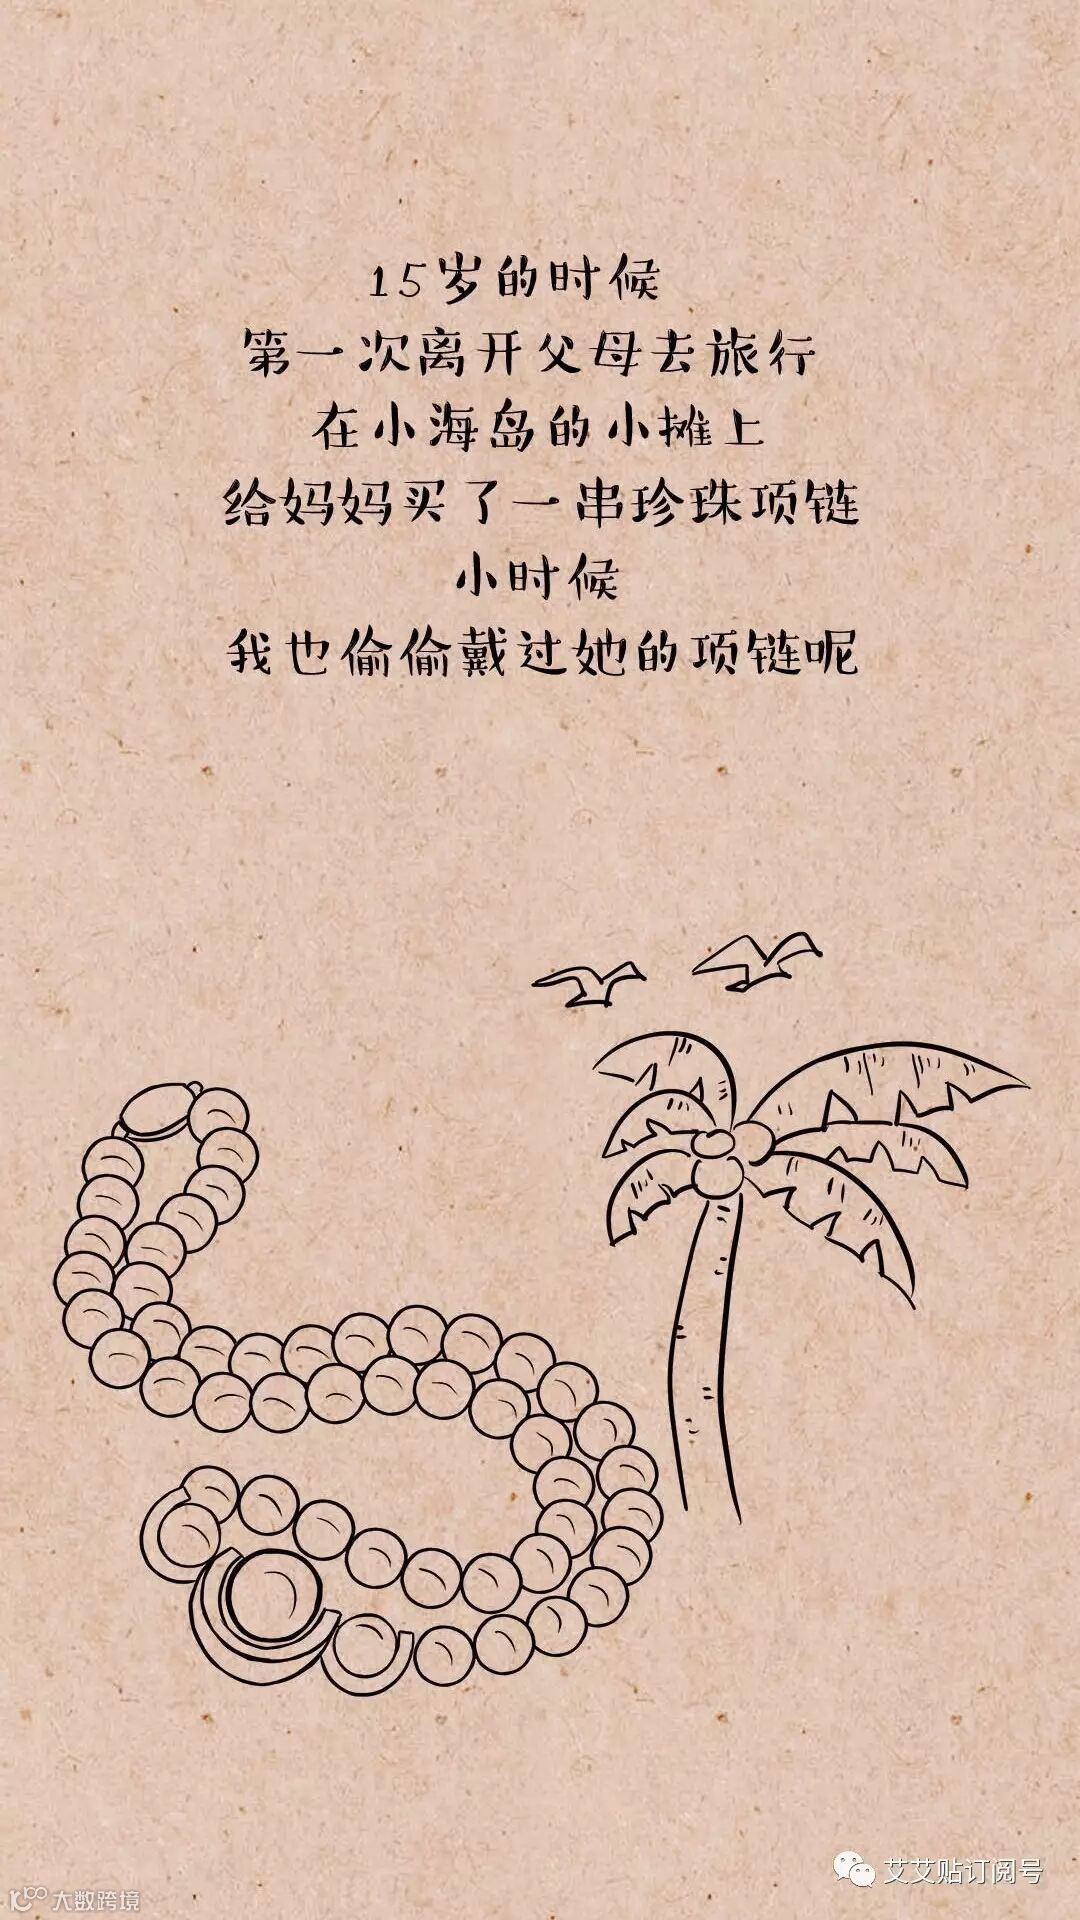 15岁的时候
第一次离开父母去旅行
在小海岛的小摊上
给妈妈买了一串珍珠项链
小时候
我也偷偷戴过她的项链呢
艾艾贴订阅号
大数跨境